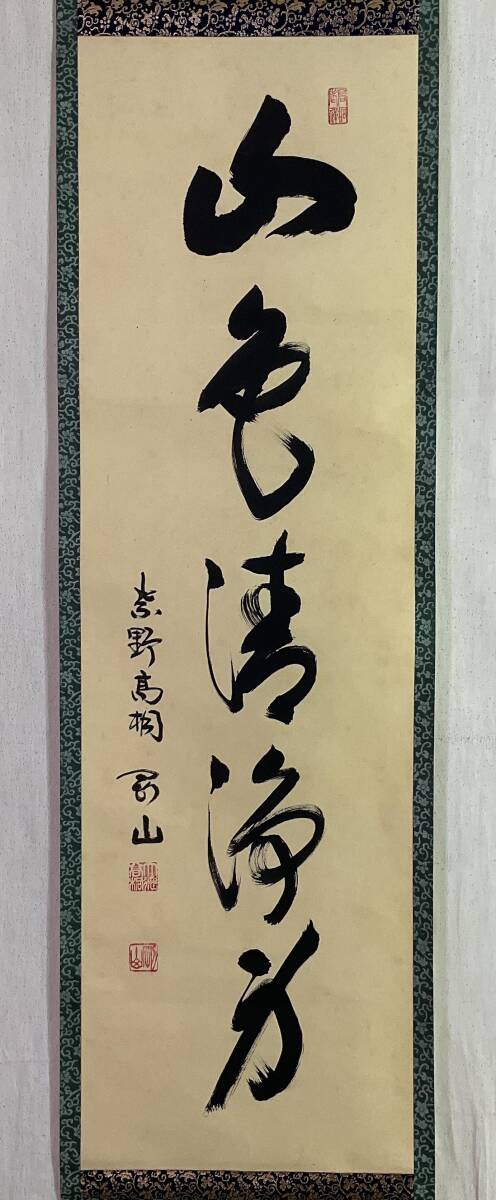 山色清浄身
紫野高桐 剛山